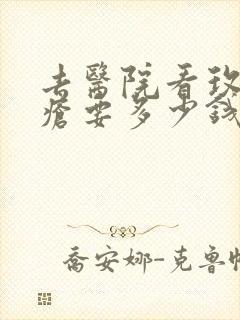 去醫院看玫
瘡要多少錢
喬安娜-克魯